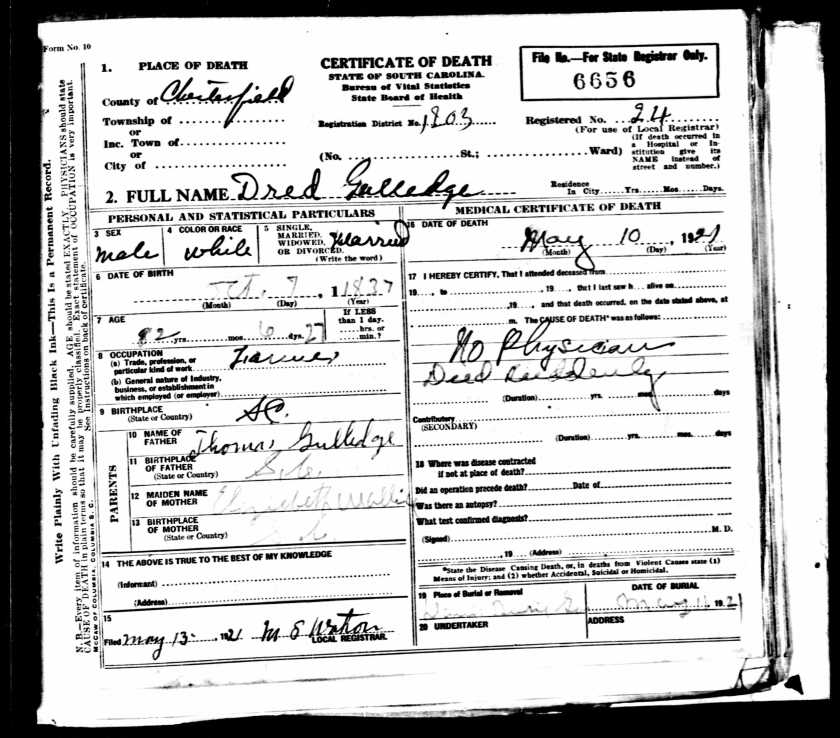 Form No. 10
1. PLACE OF DEATH
County of Chesterfield
Township of
or
Inc. Town of
or
City of
CERTIFICATE OF DEATH
STATE OF SOUTH CAROLINA.
Bureau of Vital Statistics
State Board of Health
Registration District No. 1803
(No. St.; Ward)
File No.—For State Registrar Only.
6656
Registered No. 24
(For use of Local Registrar)
(If death occurred in
a Hospital or In-
stitution give its
NAME instead of
street and number.)
2. FULL NAME Dred Gulledge
Residence
In City Yrs. Mos. Days.
PERSONAL AND STATISTICAL PARTICULARS
3 SEX
male
4 COLOR OR RACE
white
5 SINGLE,
MARRIED,
WIDOWED,
OR DIVORCED.
(Write the word)
Married
6 DATE OF BIRTH
Oct. 7, 1837
(Month) (Day) (Year)
7 AGE
82 yrs. mos. 6 dys. 27
If LESS
than 1 day.
hrs. or
min.?
8 OCCUPATION
(a) Trade, profession, or
particular kind of work Farmer
(b) General nature of Industry,
business, or establishment in
which employed (or employer)
9 BIRTHPLACE
(State or Country) SC.
PARENTS
10 NAME OF
FATHER Thomas Gulledge
11 BIRTHPLACE
OF FATHER
(State or Country) S.C.
12 MAIDEN NAME
OF MOTHER Elizabeth
13 BIRTHPLACE
OF MOTHER
(State or Country) S.C.
14 THE ABOVE IS TRUE TO THE BEST OF MY KNOWLEDGE
(Informant)
(Address)
15
Filed May 13, 1921 M S Watson
LOCAL REGISTRAR.
MEDICAL CERTIFICATE OF DEATH
16 DATE OF DEATH
May 10, 1921
(Month) (Day) (Year)
17 I HEREBY CERTIFY, That I attended deceased from
19, to , 19, that I last saw h alive on
,19, and that death occurred, on the date stated above, at
m. The CAUSE OF DEATH* was as follows:
No Physician
Died suddenly
(Duration) yrs. mos. days
Contributory
(SECONDARY)
(Duration) yrs. mos. days
18 Where was disease contracted
if not at place of death?
Did an operation precede death? Date of
Was there an autopsy?
What test confirmed diagnosis?
(Signed) M. D.
, 19 (Address)
*State the Disease Causing Death, or, in deaths from Violent Causes state (1)
Means of Injury; and (2) whether Accidental, Suicidal or Homicidal.
19 Place of Burial or Removal
DATE OF BURIAL
May 11 1921
20 UNDERTAKER
ADDRESS
Write Plainly With Unfading Black Ink—This Is a Permanent Record.
N. B.—Every item of information should be carefully supplied. AGE should be stated EXACTLY. PHYSICIANS should state
CAUSE OF DEATH in plain terms so that it may be properly classified. Exact statement of OCCUPATION is very important.
See Instructions on back of certificate.
McCAW OF COLUMBIA, COLUMBIA S. C.